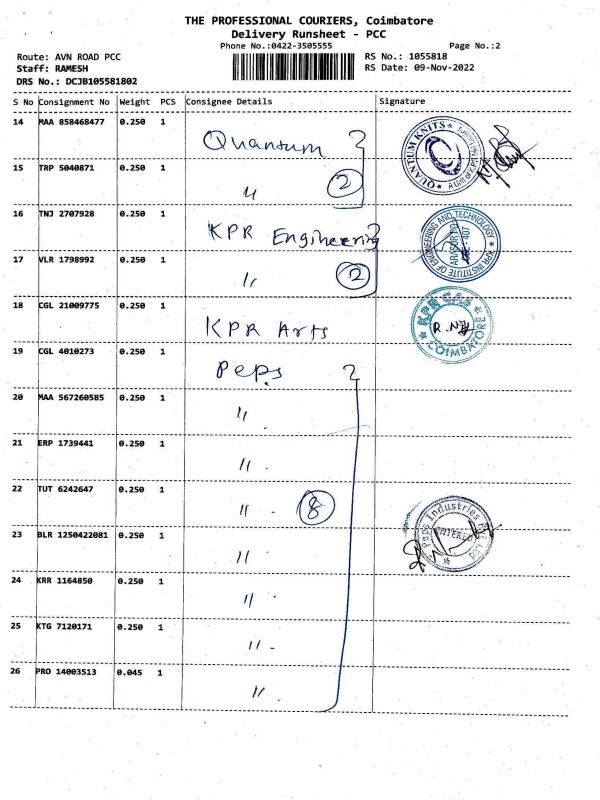 THE PROFESSIONAL COURIERS, Coimbatore
Delivery Runsheet - PCC
Phone No.:0422-3505555 Page No.:2
Route: AVN ROAD PCC RS No.: 1055818
Staff: RAMESH RS Date: 09-Nov-2022
DRS No.: DCJB105581802
S No Consignment No Weight PCS Consignee Details Signature
14 MAA 858468477 0.250 1 Quantum
QUANTUM KNITS
15 TRP 5040871 0.250 1 " 2
16 TNJ 2707928 0.250 1 KPR Engineering
KPR INSTITUTE OF ENGINEERING AND TECHNOLOGY
17 VLR 1798992 0.250 1 " 2
18 CGL 21009775 0.250 1 KPR Arts
KPR CAS
COIMBATORE
19 CGL 4010273 0.250 1 Peps
20 MAA 567260585 0.250 1 "
21 ERP 1739441 0.250 1 "
22 TUT 6242647 0.250 1 " 8
Peps Industries Pvt Ltd
ENTERED
23 BLR 1250422081 0.250 1 "
24 KRR 1164850 0.250 1 "
25 KTG 7120171 0.250 1 "
26 PRO 14003513 0.045 1 "